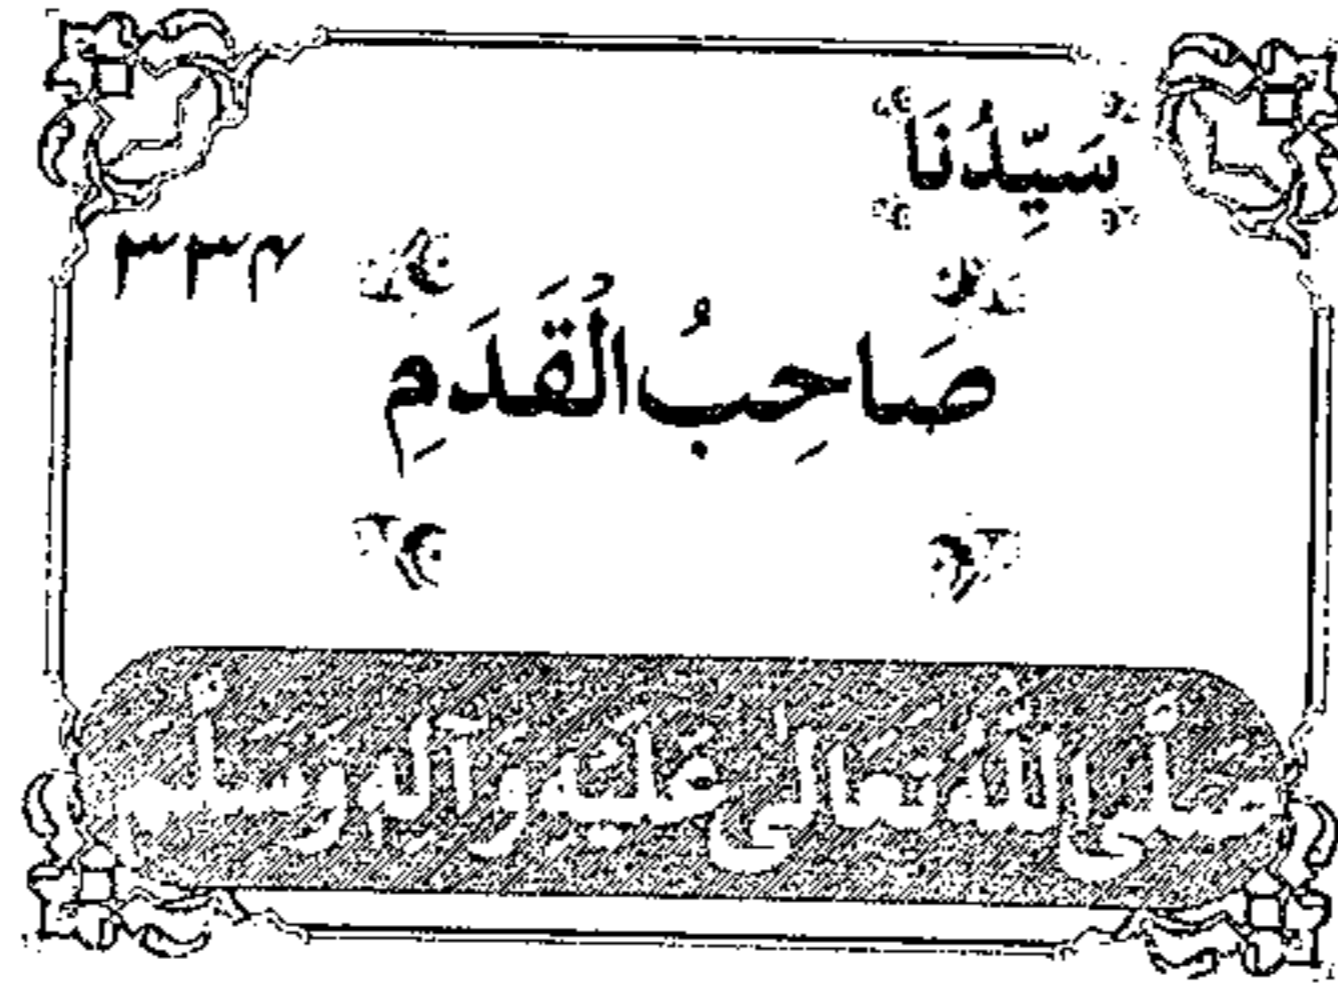 سَيِّدُنَا
۳۳۴
صَاحِبُ الْقَدَمِ
صَلَّى اللّٰهُ تَعَالٰى عَلَيْهِ وَآلِهٖ وَسَلَّمَ